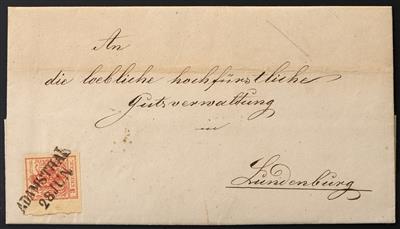 An
die loebliche hochfürstliche
Gutsverwaltung
in
Lundenburg
ADAMSTHAL
28 JUN.